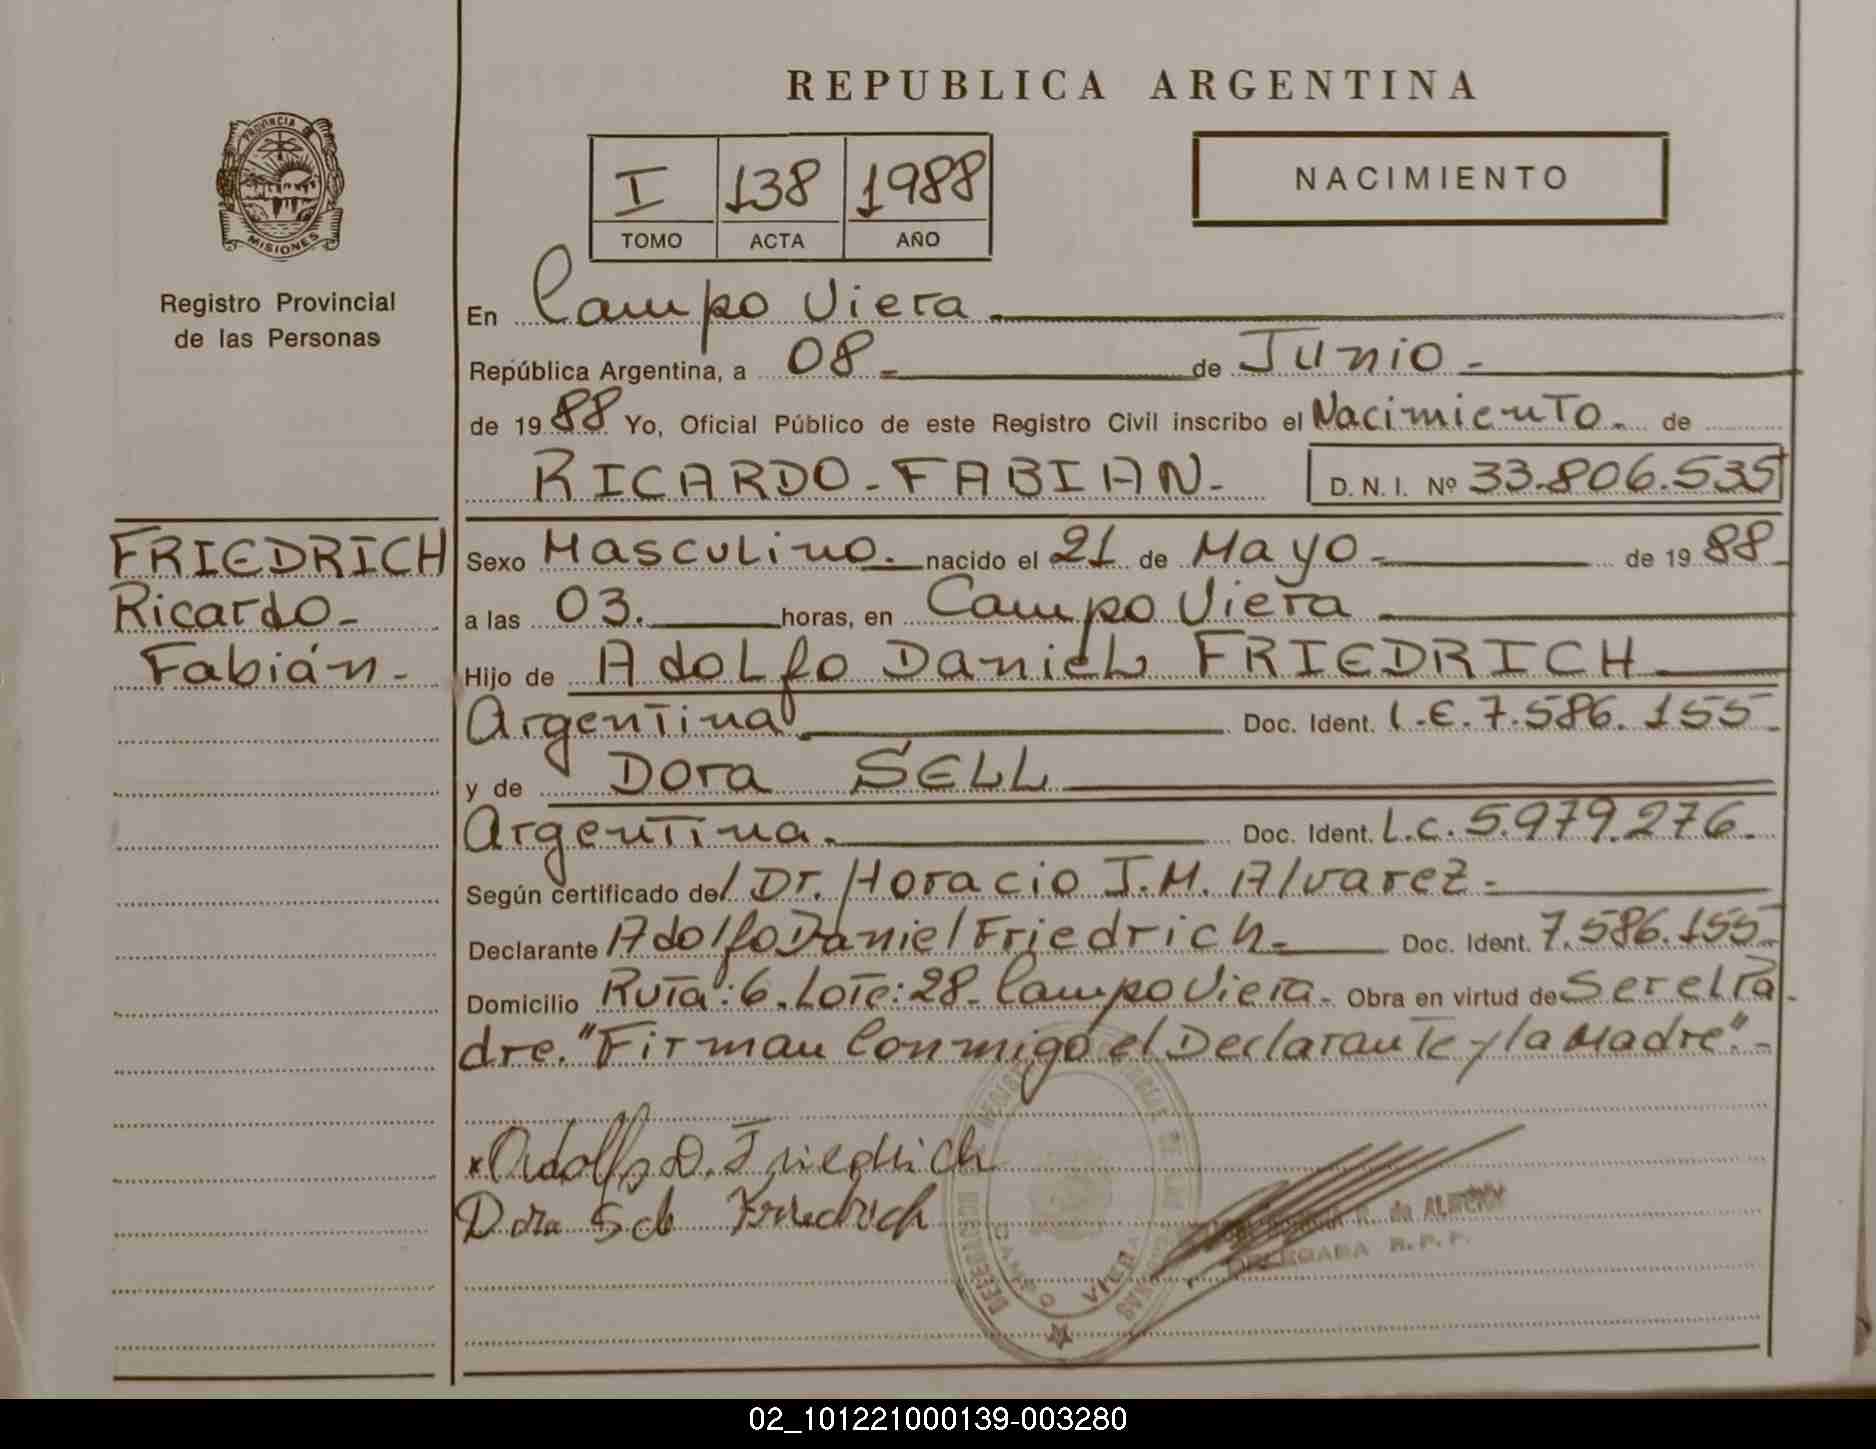 REPUBLICA ARGENTINA
PROVINCIA DE
MISIONES
Registro Provincial
de las Personas
I 138 1988
TOMO ACTA AÑO
NACIMIENTO
En Campo Viera
República Argentina, a 08 - de Junio -
de 1988 Yo, Oficial Público de este Registro Civil inscribo el Nacimiento. de
RICARDO - FABIAN - D. N. I. Nº 33.806.535
FRIEDRICH
Ricardo -
Fabián -
Sexo Masculino. nacido el 21 de Mayo - de 1988
a las 03. horas, en Campo Viera
Hijo de Adolfo Daniel FRIEDRICH
Argentina Doc. Ident. L.E. 7.586.155
y de Dora SELL
Argentina. Doc. Ident. L.C. 5.979.276.
Según certificado del Dr. Horacio J.M. Alvarez -
Declarante Adolfo Daniel Friedrich - Doc. Ident. 7.586.155
Domicilio Ruta: 6. Lote: 28 - Campo Viera - Obra en virtud de Ser el Pa-
dre. "Firman Conmigo el Declarante y la Madre". -
x Adolfo D. Friedrich
Dora S de Friedrich
CAMPO VIERA
DELEGADA R. P. P.
02_101221000139-003280